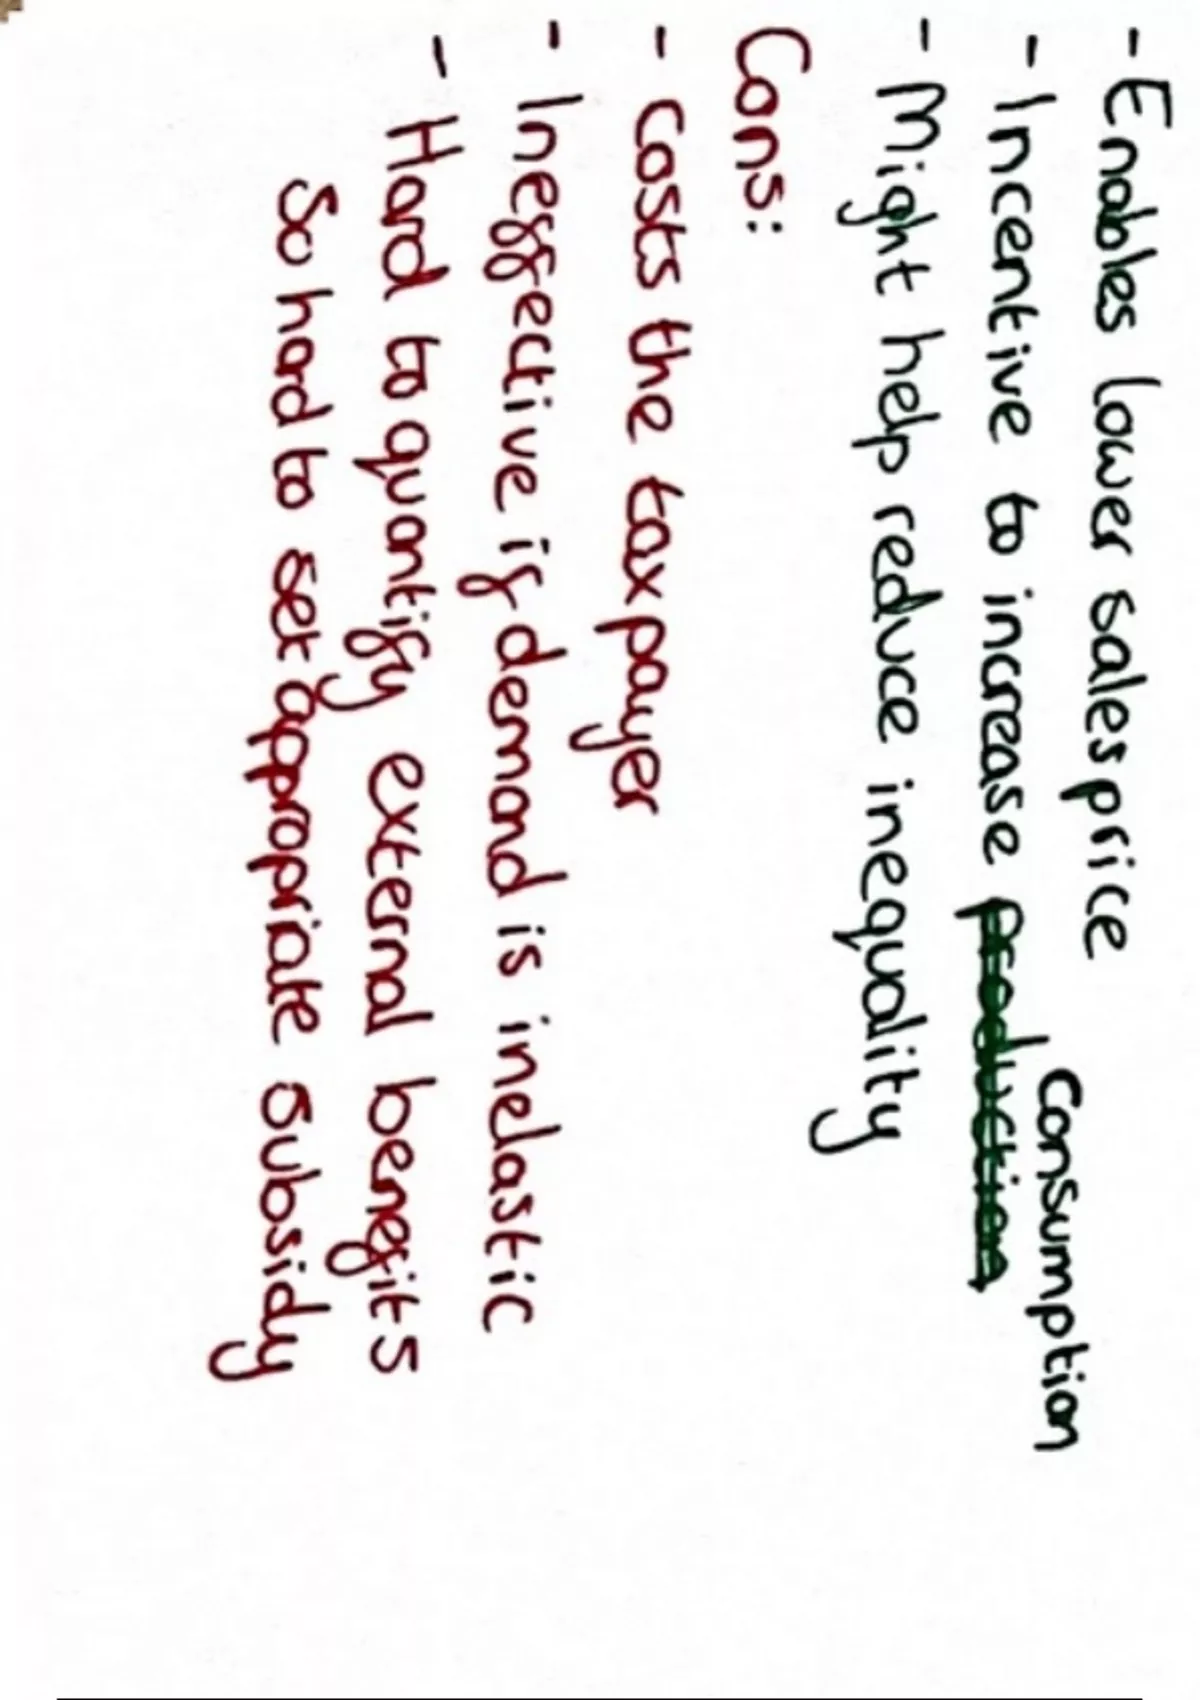 - Enables lower sales price
- Incentive to increase production Consumption
- Might help reduce inequality
Cons:
- Costs the taxpayer
- Ineffective if demand is inelastic
- Hard to quantify external benefits
So hard to set appropriate subsidy